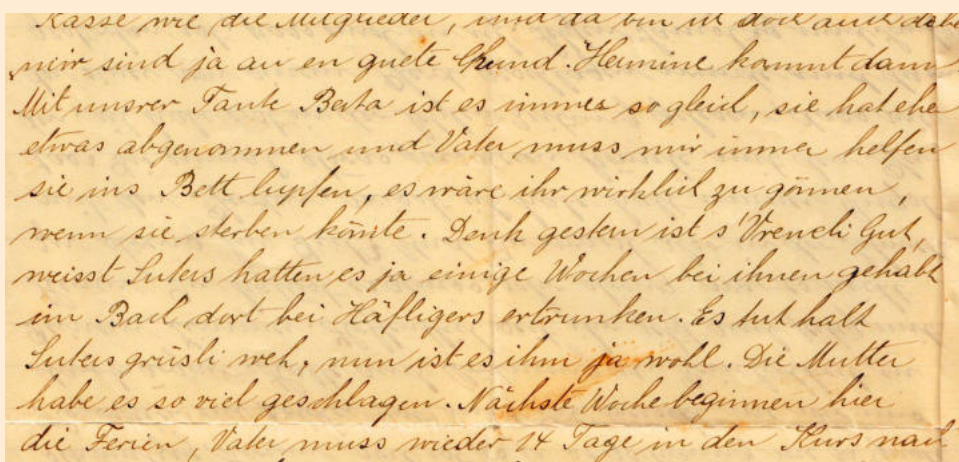 Kasse wie die Mitglieder, und da bin ich doch auch dabe
mir sind ja au en guete Chund. Hermine kommt dann
Mit unsrer Tante Berta ist es immer so gleich, sie hat ehe
etwas abgenommen und Vater muss mir immer helfen
sie ins Bett lupfen, es wäre ihr wirklich zu gönnen,
wenn sie sterben könnte. Denk gestern ist s'Vreneli Gut,
weisst Suters hatten es ja einige Wochen bei ihnen gehabt
im Bach dort bei Häfligers ertrunken. Es tut halt
Suters grüsli weh, nun ist es ihm ja wohl. Die Mutter
habe es so viel geschlagen. Nächste Woche beginnen hier
die Ferien, Vater muss wieder 14 Tage in den Kurs nach